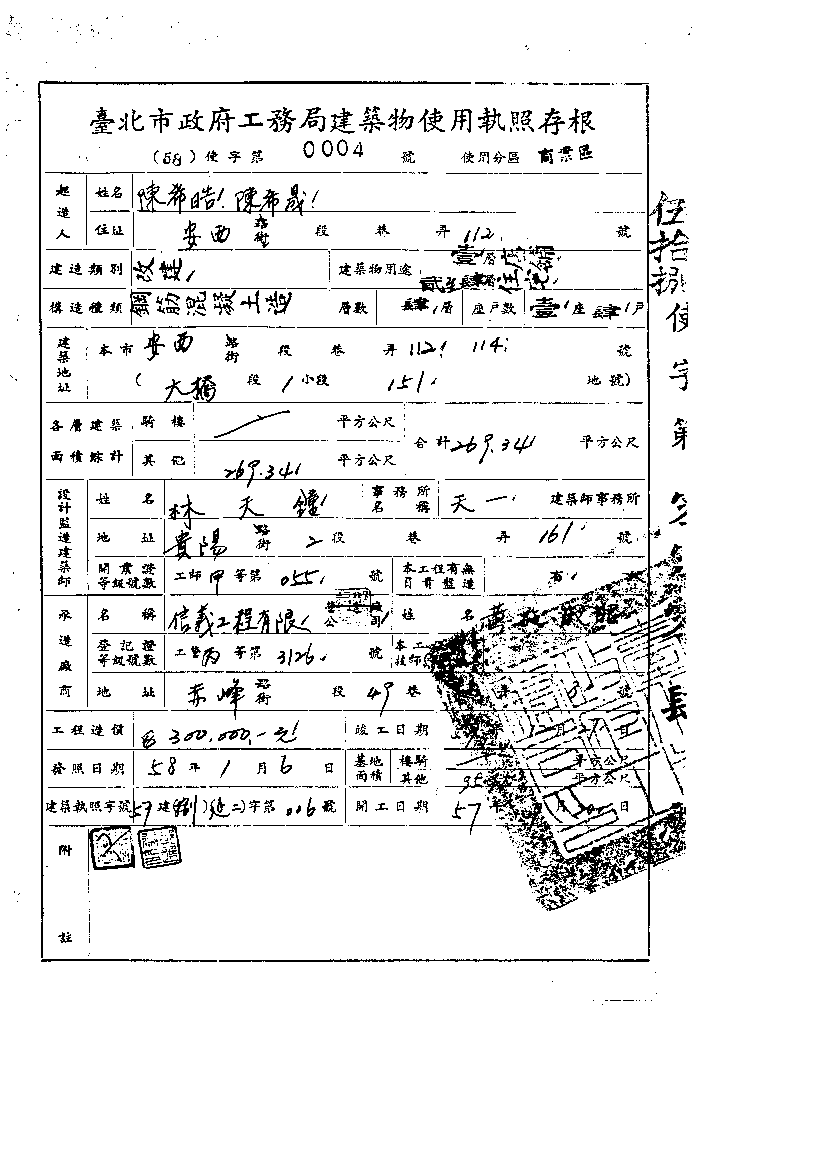 臺北市政府工務局建築物使用執照存根
(58)使字第 0004 號 使用分區 商業區
起造人 姓名 陳希皓 陳希晟
住址 安西 路街 段 巷 弄 112 號
建造類別 改建 建築物用途 壹層店鋪 貳至肆層住宅
構造種類 鋼筋混凝土造 層數 肆層 座戶數 壹座肆戶
建築地址 本市 安西 路街 段 巷 弄 112 114 號
(大橋 段 1 小段 151 地號)
各層建築面積綜計 騎樓 平方公尺 合計 269.34 平方公尺
其他 269.34 平方公尺
設計監造建築師 姓名 林天鐘 事務所名稱 天一 建築師事務所
地址 貴陽 路街 2 段 巷 弄 161 號
開業證等級號數 工師 甲 等第 055 號 本工程有無自負監造 有
承造廠商 名稱 信義工程有限公司 姓名
登記證等級號數 工營 丙 等第 3126 號 本工 技師
地址 赤峰 路街 段 49 巷 弄 號
工程造價 300,000.-元 竣工日期 日
發照日期 58 年 1 月 6 日 基地面積 騎樓 平方公尺
其他 平方公尺
建築執照字號 57 建( )( )字第 006 號 開工日期 57 年 日
附註
伍拾捌使字第